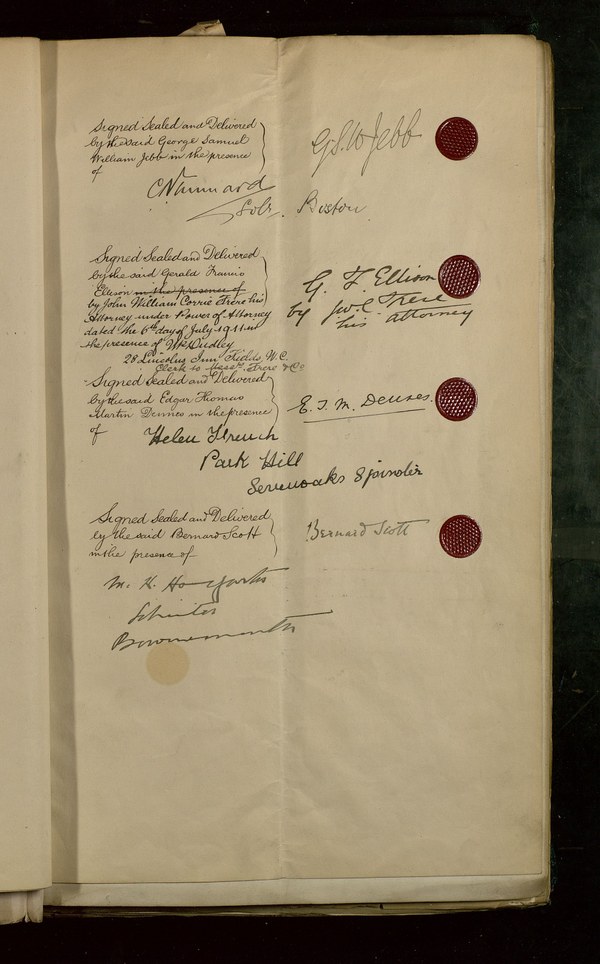 Signed Sealed and Delivered
by the said George Samuel
William Jebb in the presence
of
G.S.W Jebb
Solr. Boston
Signed Sealed and Delivered
by the said Gerald Francis
Ellison in the presence of
by John William Corrie Frere his
Attorney under Power of Attorney
dated the 6th day of July 1911 in
the presence of Wm Dudley
28 Lincolns Inn Fields, W.C.
Clerk to Messrs. Frere & Co
G. F. Ellison
by Jw.C. Frere
his attorney
Signed Sealed and Delivered
by the said Edgar Thomas
Martin Dennes in the presence
of
E. T. M. Dennes.
Helen French
Park Hill
Sevenoaks Spinster
Signed Sealed and Delivered
by the said Bernard Scott
in the presence of
Bernard Scott
M. H.
Solicitor
Bournemouth